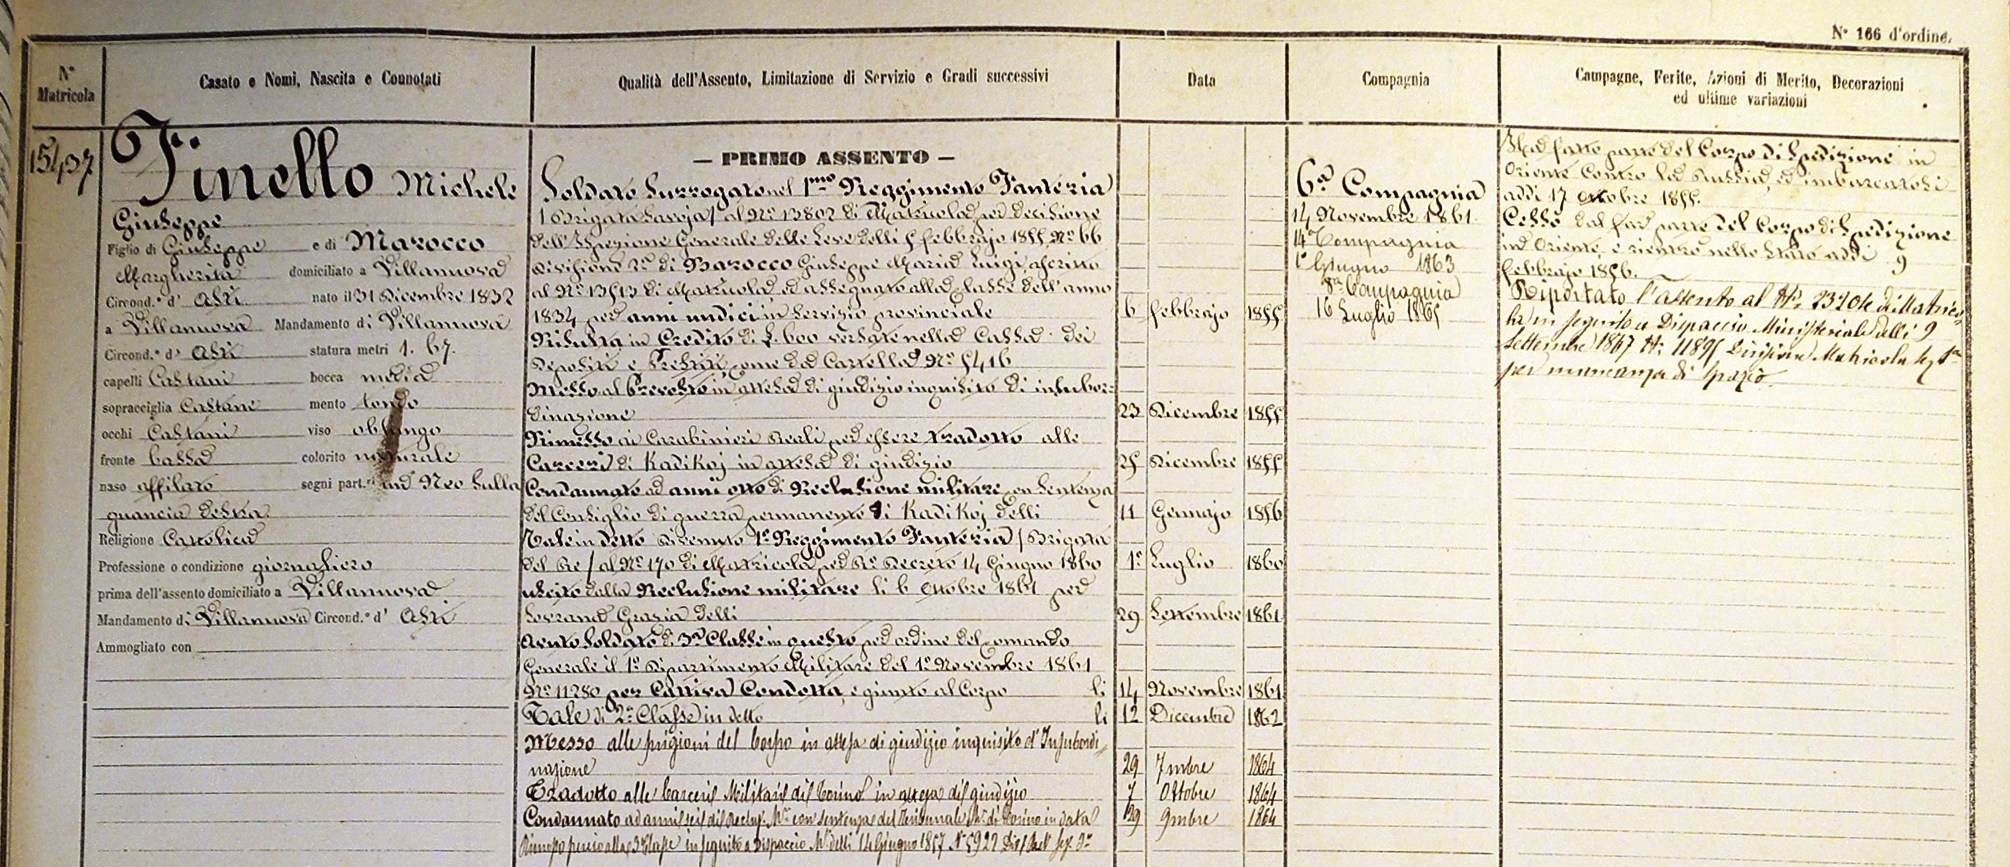 Nº 166 d'ordine.
Nº Matricola
Casato e Nomi, Nascita e Connotati
Qualità dell'Assento, Limitazione di Servizio e Gradi successivi
Data
Compagnia
Campagne, Ferite, Azioni di Merito, Decorazioni
ed ultime variazioni
15437
Finello Michele
Giuseppe
Figlio di Giuseppe e di Marocco
Margherita domiciliato a Villanuova
Circond.º d' Asti nato il 31 Dicembre 1832
a Villanuova Mandamento di Villanuova
Circond.º d' Asti statura metri 1. 67.
capelli Castani bocca media
sopracciglia Castane mento tondo
occhi Castani viso oblungo
fronte bassa colorito naturale
naso affilato segni part. un Neo sulla
guancia destra
Religione Cattolica
Professione o condizione giornaliero
prima dell'assento domiciliato a Villanuova
Mandamento di Villanuova Circond.º d' Asti
Ammogliato con
— PRIMO ASSENTO —
Soldato Surrogato nel 1mo Reggimento Fanteria
(Brigata Savoja) al Nº 13802 di Matricola per decisione
dell'Ispezione Generale delle Leve delli 5 febbrajo 1855 Nº 66
Divisione 2ª di Marocco Giuseppe Maria Luigi ascritto
al Nº 13513 di Matricola, ed assegnato alla Classe dell'anno
1834 per anni undici in servizio provinciale 6 febbrajo 1855
Risulta in Credito di £. 600 versate nella Cassa dei
Depositi e Prestiti come da Cartella Nº 5416
Messo al Prevosto in attesa di giudizio inquisito di insubor=
dinazione 23 Dicembre 1855
Rimesso ai Carabinieri Reali per essere tradotto alle
Carceri di Kadikoj in attesa di giudizio 25 Dicembre 1855
Condannato ad anni otto di Reclusione militare con sentenza
del Consiglio di guerra permanente di Kadikoj delli 11 Gennajo 1856
Tale in detto divenuto 1º Reggimento Fanteria (Brigata
del Re) al Nº 170 di Matricola per Rº Decreto 14 Giugno 1860 1º Luglio 1860
uscito dalla Reclusione militare li 6 Ottobre 1861 per
Sovrana Grazia delli 29 Settembre 1861
Avuto Soldato di 3ª Classe in questo per ordine del comando
Generale il 1º Dipartimento Militare del 1º Novembre 1861
Nº 11280 per Cattiva Condotta, e giunto al Corpo li 14 Novembre 1861
Tale di 2ª Classe in detto li 12 Dicembre 1862
Messo alle prigioni del Corpo in attesa di giudizio inquisito d'Insubordi
nazione 29 7mbre 1864
Tradotto alle Carceri Militari di Torino in attesa di giudizio 7 Ottobre 1864
Condannato ad anni sei di Reclus. Mre con sentenza del Tribunale Mre di Torino in data 29 9mbre 1864
6ª Compagnia
14 Novembre 1861.
14ª Compagnia
1º Giugno 1863
8ª Compagnia
16 Luglio 1865
Ha fatto parte del Corpo di Spedizione in
Oriente Contro la Russia, ed imbarcatosi
addì 17 Ottobre 1855.
Cessò dal far parte del Corpo di Spedizione
in Oriente, e rientrò nello Stato addì 9
febbrajo 1856.
Riportato l'assento al Nº 23204 di Matrico=
la in seguito a Dispaccio Ministeriale delli 9
Settembre 1867 Nº 11895 Divisione Matricola Sez 1ª
per mancanza di spazio.